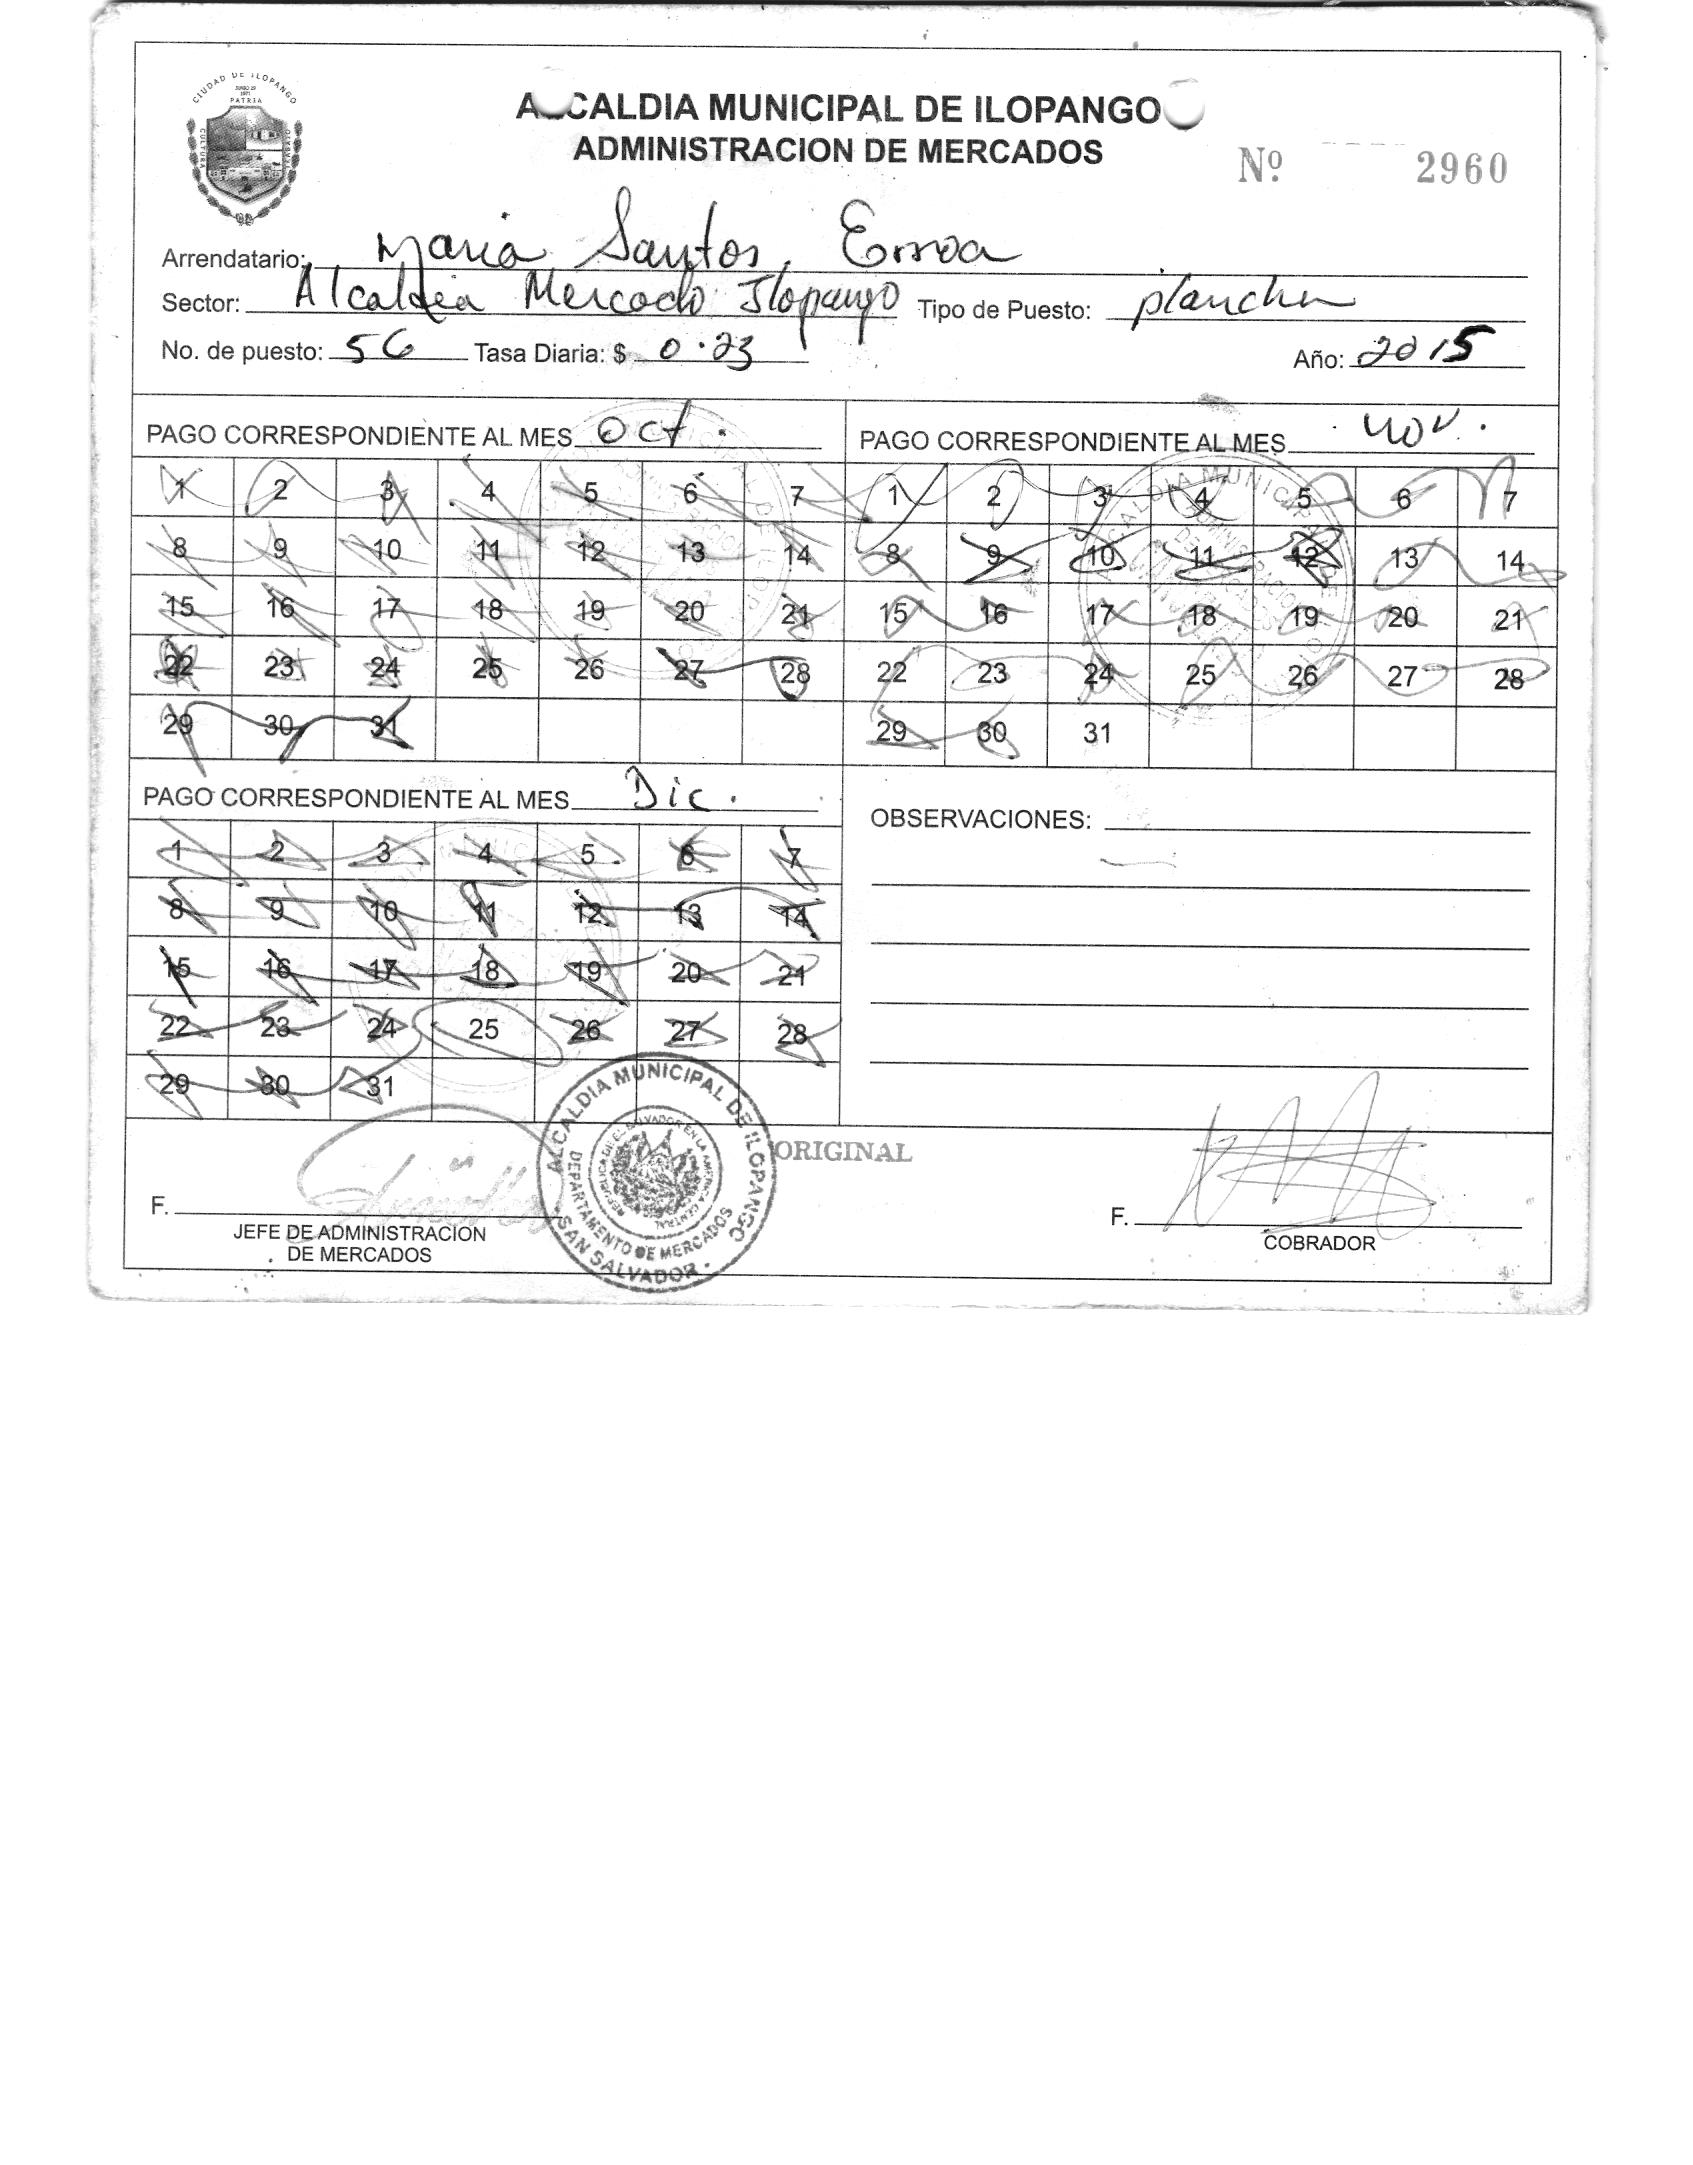 CIUDAD DE ILOPANGO
JUNIO 29
1971
PATRIA
CULTURA
ALCALDIA MUNICIPAL DE ILOPANGO
ADMINISTRACION DE MERCADOS
Nº 2960
Arrendatario: Maria Santos Erroa
Sector: Alcaldia Mercado Ilopango Tipo de Puesto: plancha
No. de puesto: 56 Tasa Diaria: $ 0.23 Año: 2015
PAGO CORRESPONDIENTE AL MES Oct. PAGO CORRESPONDIENTE AL MES Nov.
1 2 3 4 5 6 7 1 2 3 4 5 6 7
8 9 10 11 12 13 14 8 9 10 11 12 13 14
15 16 17 18 19 20 21 15 16 17 18 19 20 21
22 23 24 25 26 27 28 22 23 24 25 26 27 28
29 30 31 29 30 31
PAGO CORRESPONDIENTE AL MES Dic.
OBSERVACIONES:
1 2 3 4 5 6 7
8 9 10 11 12 13 14
15 16 17 18 19 20 21
22 23 24 25 26 27 28
29 30 31
ALCALDIA MUNICIPAL DE ILOPANGO
REPUBLICA DE EL SALVADOR EN LA AMERICA CENTRAL
DEPARTAMENTO DE MERCADOS
SAN SALVADOR.
ORIGINAL
F. F.
JEFE DE ADMINISTRACION
DE MERCADOS
COBRADOR